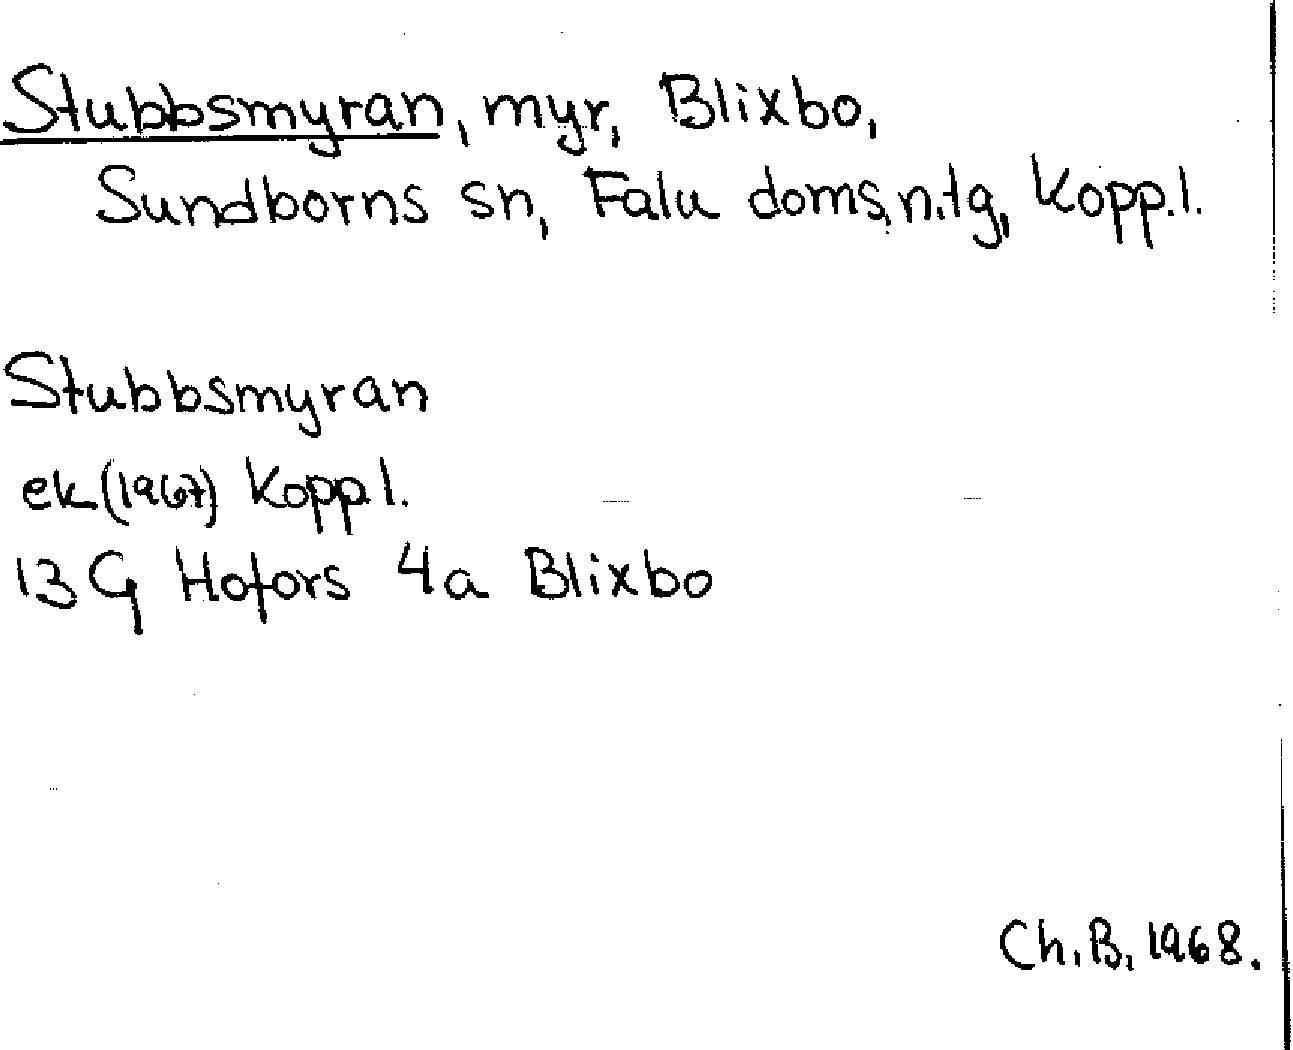 Stubbsmyran, myr, Blixbo,
Sundborns sn, Falu doms.n.tg, Kopp.l.
Stubbsmyran
ek (1967) Kopp l.
13 G Hofors 4a Blixbo
Ch. B. 1968.